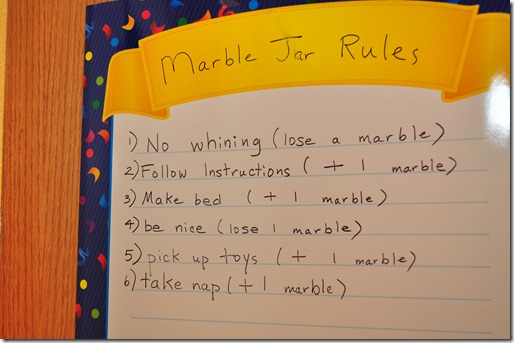 Marble Jar Rules
1) No whining (lose a marble)
2) Follow Instructions (+ 1 marble)
3) Make bed (+ 1 marble)
4) be nice (lose 1 marble)
5) pick up toys (+ 1 marble)
6) take nap (+ 1 marble)